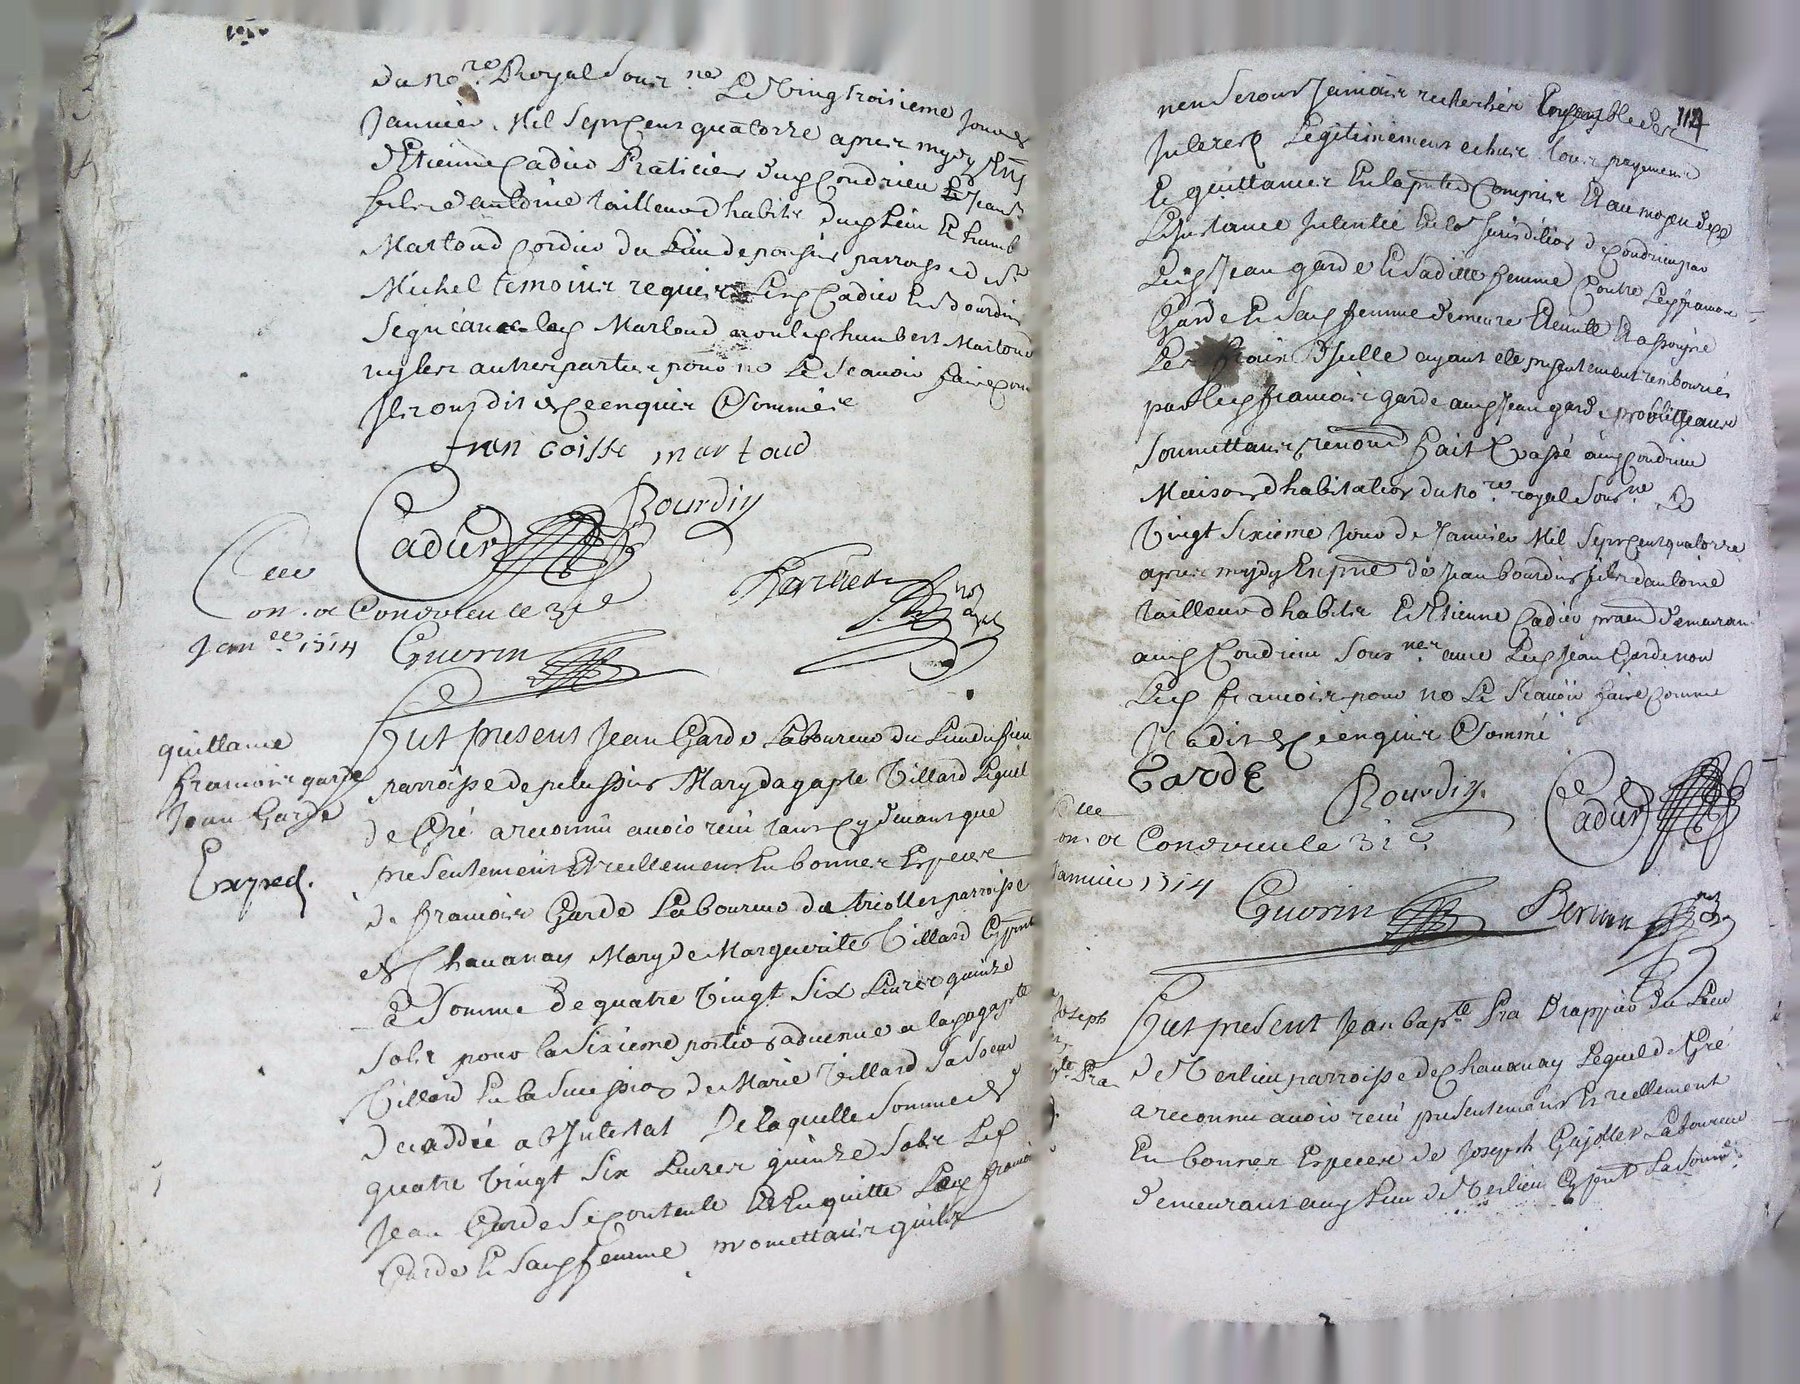 du no.re Royal sousne Le Vingtroisieme Jour de
Janvier Mil Sept Cent quatorze apres mydy
d'Etienne Cadier Praticien dud Condrieu Et Jean
fils d'antoine tailleur d habits dud Lieu Et humb
Martoud Cordier du Lieu de parroisse de St
Michel temoins requis Led Cadier Et Bourdin
signé avec lad Martoud non led humbert Martoud
ny les autres parties pour ne le scavoir faire comme
Ils ont dit de ce enquis & sommés
fran coisse martoud
Bourdin
Cadier
on. a Condrieu le 31e
Janee 1714
Guerin
quittance
francois garde
Jean Garde
Exped.
fut present Jean Garde Laboureur du Lieu du
parroisse de pelussin Mary d agapte Villard Lequel
de Gré a reconnu avoir receu tant cy devant que
presentement Et reellement En bonnes Especes
de francois Garde Laboureur de parroisse
de Chavanay Mary de Marguerite Villard
Somme de quatre Vingt Six Livres quinze
Sols pour la Sixieme portion advenue a lad agapte
Villard En la Succession de Marie Villard Sa Soeur
deceddée a Intestat De laquelle Somme de
quatre Vingt Six Livres quinze Sols Led
Jean Garde Se contente Et En quitte Led francois
Garde Et Sad femme promettant quils
114
nen seront Jamais recherchés
Interests Legitimement echus tous payements
Et quittances En la presente Compris Et au moyen de ce
L'Instance Intentée En la Jurisdition de Condrieu par
Led Jean garde Et Saditte femme Contre Led francois
Garde Et Sad femme demeure Eteinte Et assoupie
Les frais D'Icelle ayant eté presentement remboursés
par led francois garde aud Jean garde
Soumettants renoncd fait & passé aud Condrieu
Maison d habitation du No.re royal sousne Le
Vingt Sixieme Jour de Janvier Mil Sept Cent quatorze
apres mydy En pnce de Jean bourdin fils d antoine
tailleur d habits Et Etienne Cadier praen demeurans
aud Condrieu Sousnes avec Led Jean Garde non
Led francois pour ne Le Scavoir faire comme
Il a dit de ce enquis & sommé
GardE
Bourdin
Cadier
on. a Condrieu le 31e
Janvier 1714
Guerin
Joseph
Pra
fut present Jean bapte Pra Drappier du Lieu
de Verlieu parroisse de Chavanay Lequel de Gré
a reconnu avoir receu presentement Et reellement
En bonnes Especes de Joseph Laboureur
demeurant aud Lieu de Verlieu La Somme